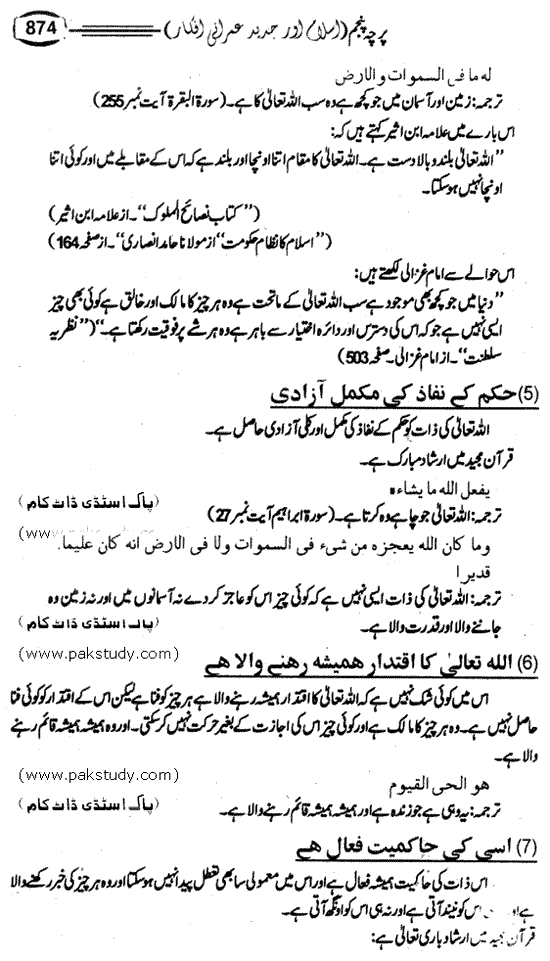 874
پرچہ پنجم (اسلام اور جدید عمرانی افکار)
له ما فى السموات والارض
ترجمہ: زمین اور آسمان میں جو کچھ ہے وہ سب اللہ تعالیٰ کا ہے۔ (سورۃ البقرۃ آیت نمبر 255)
اس بارے میں علامہ ابن اثیر کہتے ہیں کہ:
”اللہ تعالیٰ بلند و بالا دست ہے۔ اللہ تعالیٰ کا مقام اتنا اونچا اور بلند ہے کہ اس کے مقابلے میں اور کوئی اتنا
اونچا نہیں ہو سکتا۔
(”کتاب نصائح الملوک“۔ از علامہ ابن اثیر)
(”اسلام کا نظام حکومت“ از مولانا حامد انصاری“۔ از صفحہ 164)
اس حوالے سے امام غزالی لکھتے ہیں:
”دنیا میں جو کچھ بھی موجود ہے سب اللہ تعالیٰ کے ماتحت ہے وہ ہر چیز کا مالک اور خالق ہے کوئی بھی چیز
ایسی نہیں ہے جو کہ اس کی دسترس اور دائرہ اختیار سے باہر ہے وہ ہر شے پر فوقیت رکھتا ہے۔“ (”نظریہ
سلطنت“۔ از امام غزالی۔ صفحہ 503)
(5) حکم کے نفاذ کی مکمل آزادی
اللہ تعالیٰ کی ذات کو حکم کے نفاذ کی مکمل اور کلی آزادی حاصل ہے۔
قرآن مجید میں ارشاد مبارک ہے۔
يفعل الله ما يشاء۔
(پاک اسٹڈی ڈاٹ کام)
ترجمہ: اللہ تعالیٰ جو چاہے وہ کرتا ہے۔ (سورۃ ابراہیم آیت نمبر 27)
(www.
وما كان الله يعجزه من شىء فى السموات ولا فى الارض انه كان عليما
قديرا
ترجمہ: اللہ تعالیٰ کی ذات ایسی نہیں ہے کہ کوئی چیز اس کو عاجز کر دے نہ آسمانوں میں اور نہ زمین وہ
جاننے والا اور قدرت والا ہے۔
(پاک اسٹڈی ڈاٹ کام)
(www.pakstudy.com)
(6) اللہ تعالیٰ کا اقتدار ہمیشہ رہنے والا ہے
اس میں کوئی شک نہیں ہے کہ اللہ تعالیٰ کا اقتدار ہمیشہ رہنے والا ہے ہر چیز کو فنا ہے لیکن اس کے اقتدار کو کوئی فنا
حاصل نہیں ہے۔ وہ ہر چیز کا مالک ہے اور کوئی چیز اس کی اجازت کے بغیر حرکت نہیں کر سکتی۔ اور وہ ہمیشہ ہمیشہ قائم رہنے
والا ہے۔
(www.pakstudy.com)
هو الحى القيوم
(پاک اسٹڈی ڈاٹ کام)
ترجمہ: یہ وہی ہے جو زندہ ہے اور ہمیشہ ہمیشہ قائم رہنے والا ہے۔
(7) اسی کی حاکمیت فعال ہے
اس ذات کی حاکمیت ہمیشہ فعال ہے اور اس میں معمولی سا بھی تعطل پیدا نہیں ہو سکتا اور وہ ہر چیز کی خبر رکھنے والا
ہے اور اس کو نیند آتی ہے اور نہ ہی اس کو اونگھ آتی ہے۔
قرآن مجید میں ارشاد باری تعالیٰ ہے: